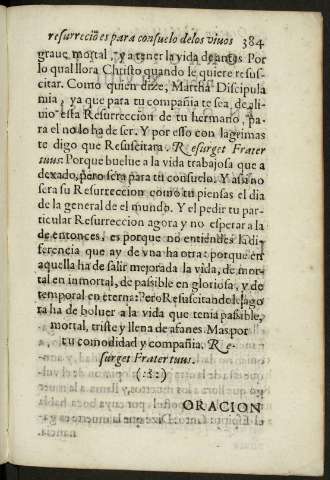 resurreciōes para consuelo de los viuos 384
graue mortal, ya tener la vida de antes Por
lo qual llora Christo quando le quiere resus-
citar. Como quien dize, Martha Discipula
mia, ya que para tu compañia te sea de ali-
uio essa Resurreccion de tu hermano, pa-
ra el no lo ha de ser. Y por esso con lagrimas
te digo que Resuscitara. Resurget Frater
tuus: Porque buelue a la vida trabajosa que a
dexado, pero sera para tu consuelo. Y assi no
sera su Resurreccion como tu piensas el dia
de la general de el mundo. Y el pedir tu par-
ticular Resurreccion agora y no esperar a la
de entonces, es porque no entiendes la di-
ferencia que ay de vna ha otra: porque en
aquella ha de salir mejorada la vida, de mor-
tal en inmortal, de passible en gloriosa, y de
temporal en eterna: Pero Resuscitandole ago
ra ha de boluer a la vida que tenia passible,
mortal, triste y llena de afanes. Mas por
tu comodidad y compañia. Re-
surget Frater tuus.
(:§:)
ORACION